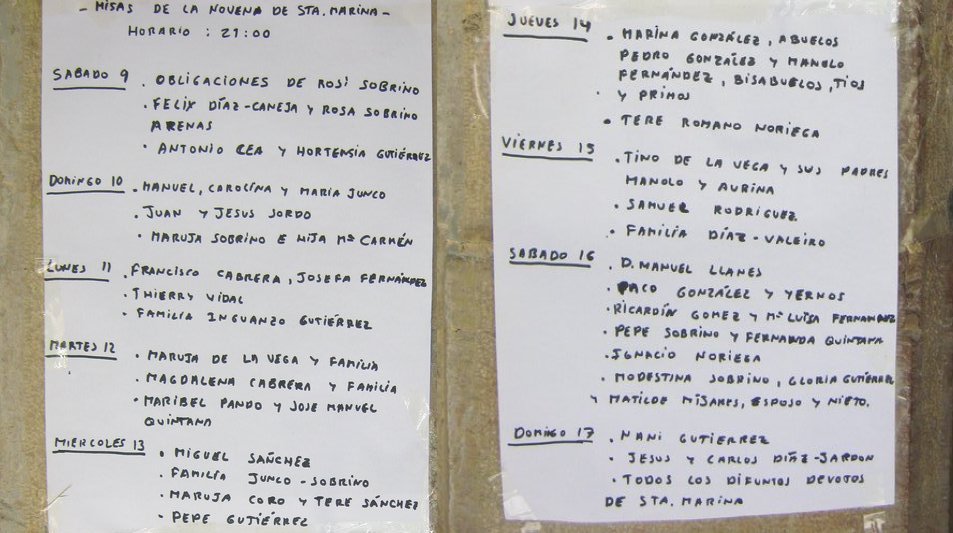 - MISAS DE LA NOVENA DE STA. MARINA -
HORARIO : 21:00
SABADO 9 · OBLIGACIONES DE ROSI SOBRINO
· FELIX DÍAZ-CANEJA Y ROSA SOBRINO
ARENAS
· ANTONIO CEA Y HORTENSIA GUTIÉRREZ
DOMINGO 10 · MANUEL, CAROLINA Y MARIA JUNCO
· JUAN Y JESUS SORDO
· MARUJA SOBRINO E HIJA Mª CARMÉN
LUNES 11 · FRANCISCO CABRERA, JOSEFA FERNÁNDEZ
· THIERRY VIDAL
· FAMILIA INGUANZO GUTIÉRREZ
MARTES 12 · MARUJA DE LA VEGA Y FAMILIA
· MAGDALENA CABRERA Y FAMILIA
· MARIBEL PANDO Y JOSE MANUEL
QUINTANA
MIERCOLES 13 · MIGUEL SÁNCHEZ
· FAMILÍA JUNCO-SOBRINO
· MARUJA CORO Y TERE SÁNCHEZ
· PEPE GUTIÉRREZ
JUEVES 14 · MARINA GONZÁLEZ, ABUELOS
PEDRO GONZÁLEZ Y MANOLO
FERNÁNDEZ, BISABUELOS, TIOS
Y PRIMOS
· TERE ROMANO NORIEGA
VIERNES 15 · TINO DE LA VEGA Y SUS PADRES
MANOLO Y AURINA
· SAMUEL RODRÍGUEZ
· FAMILÍA DÍAZ-VALEIRO
SABADO 16 · D. MANUEL LLANES
· PACO GONZÁLEZ Y YERNOS
· RICARDÍN GOMEZ Y Mª LUÍSA FERNANDEZ
· PEPE SOBRINO Y FERNANDA QUINTANA
· IGNACIO NORIEGA
· MODESTINA SOBRINO, GLORIA GUTIÉRREZ
Y MATILDE MIJARES, ESPOSO Y NIETO.
DOMINGO 17 · NANI GUTIERREZ
· JESUS Y CARLOS DÍAZ-JARDON
· TODOS LOS DIFUNTOS DEVOTOS
DE STA. MARINA